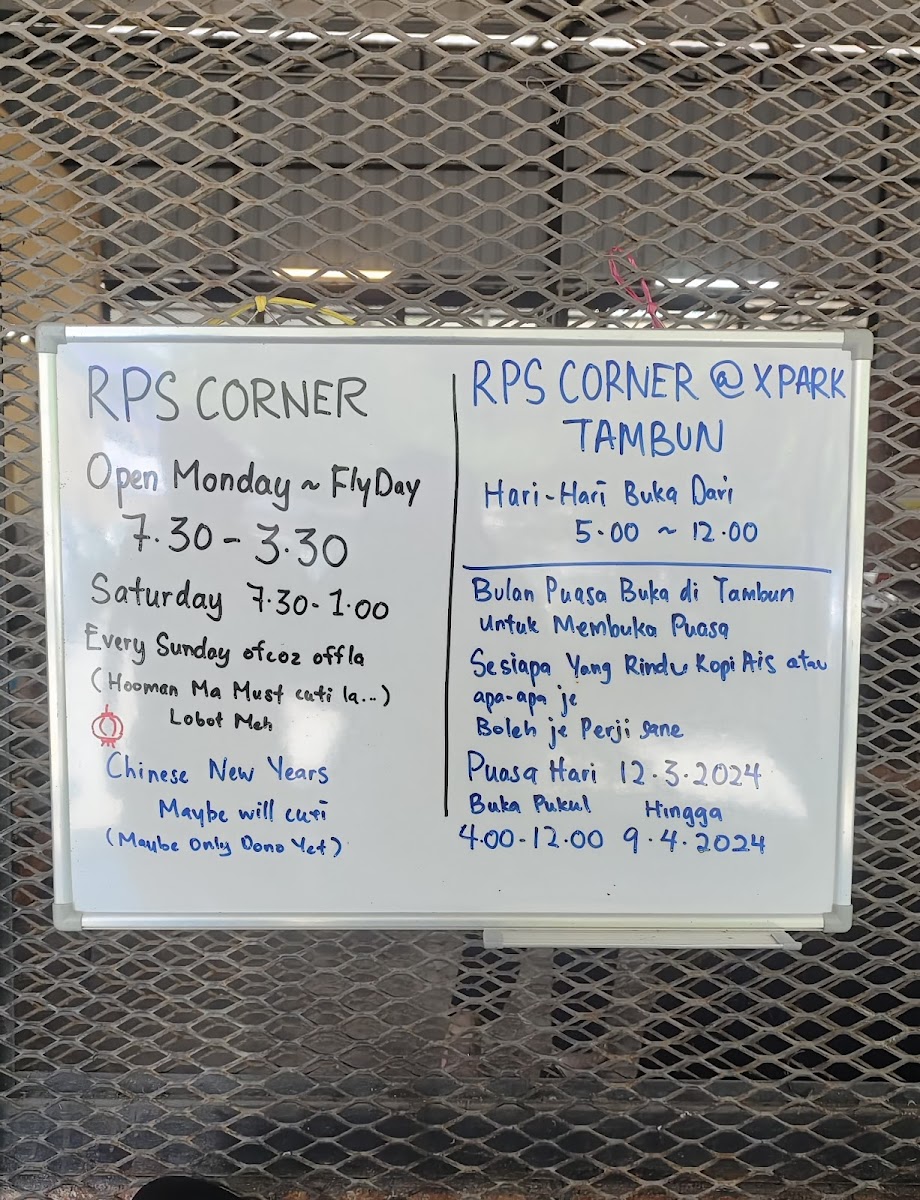 RPS CORNER
Open Monday ~ FlyDay
7.30 - 3.30
Saturday 7.30 - 1.00
Every Sunday ofcoz offla
(Hooman Ma Must cuti la...)
Lobot Meh
Chinese New Years
Maybe will cuti
(Maybe Only Dono Yet)
RPS CORNER @ XPARK
TAMBUN
Hari-Hari Buka Dari
5.00 ~ 12.00
Bulan Puasa Buka di Tambun
untuk Membuka Puasa
Sesiapa Yang Rindu Kopi Ais atau
apa-apa je
Boleh je Perji sane
Puasa Hari 12.3.2024
Buka Pukul Hingga
4.00-12.00 9.4.2024